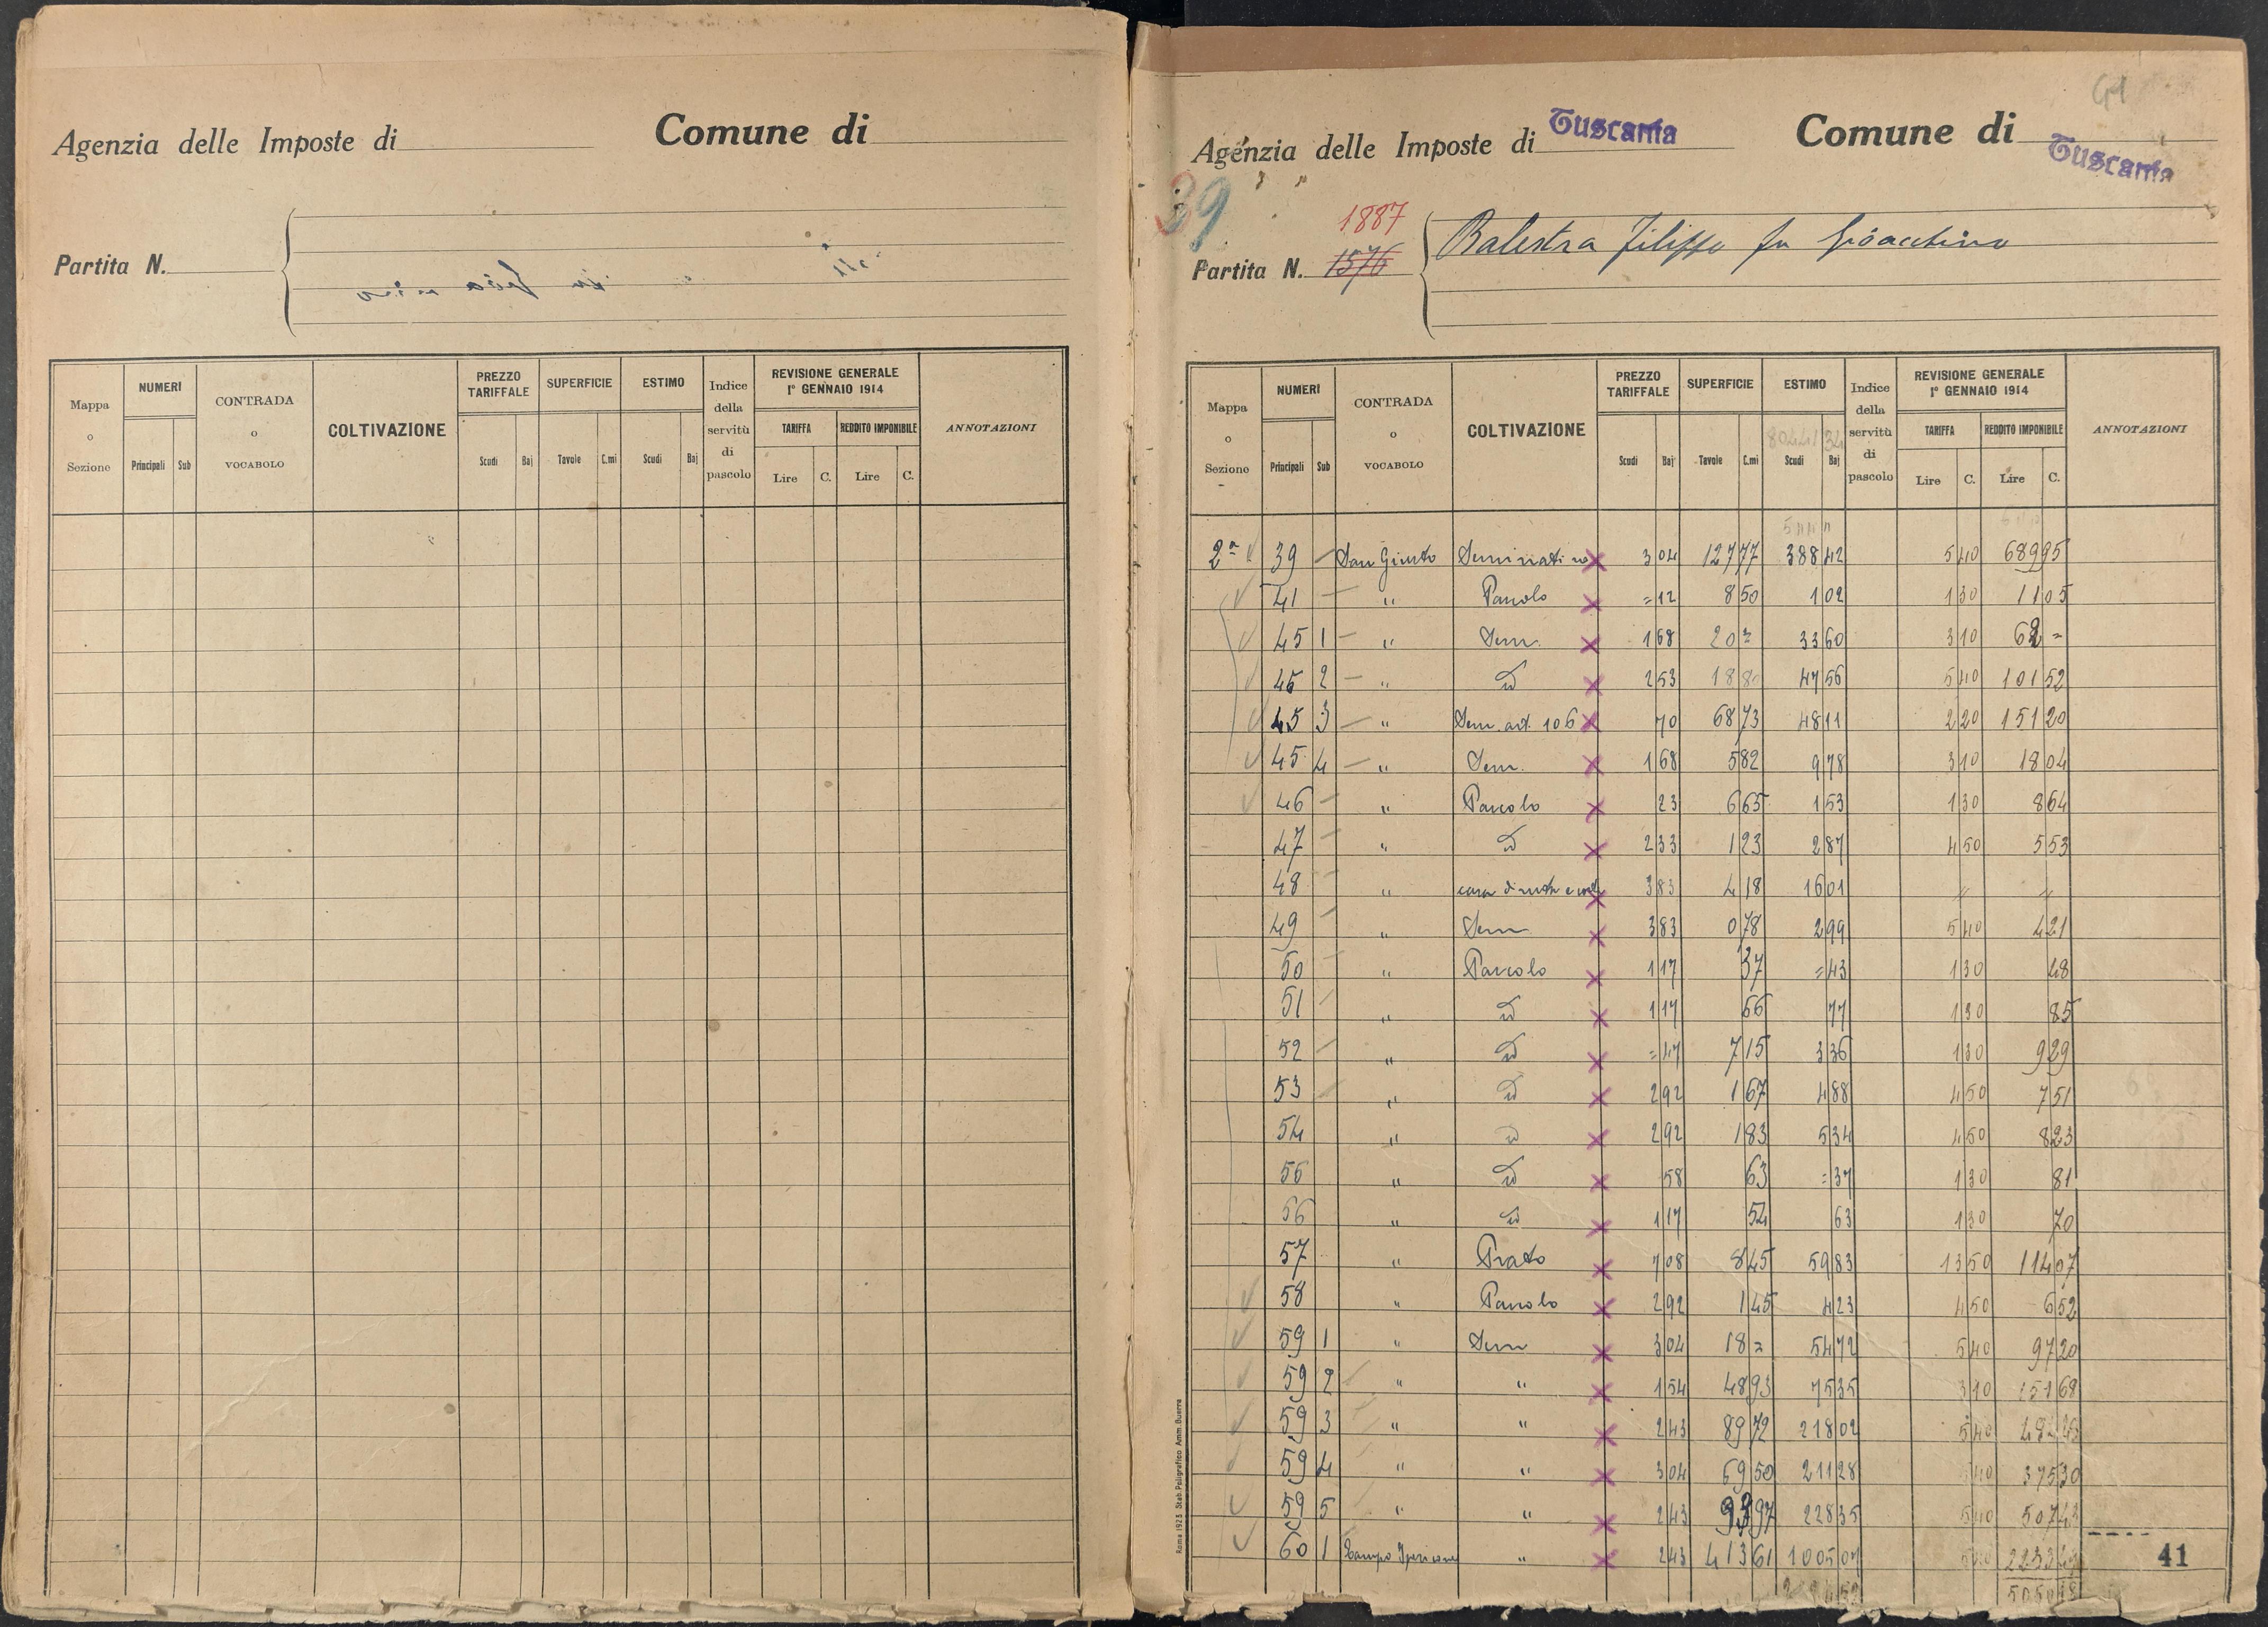 Agenzia delle Imposte di
Comune di
Partita N.
Mappa o Sezione
NUMERI
Principali Sub
CONTRADA o VOCABOLO
COLTIVAZIONE
PREZZO TARIFFALE
Scudi Baj
SUPERFICIE
Tavole C.mi
ESTIMO
Scudi Baj
Indice della servitù di pascolo
REVISIONE GENERALE 1° GENNAIO 1914
TARIFFA
Lire C.
REDDITO IMPONIBILE
Lire C.
ANNOTAZIONI
41
Agenzia delle Imposte di Tuscania
Comune di Tuscania
39
1887
Partita N. 1576
Balestra Filippo fu Gioacchino
Mappa o Sezione
NUMERI
Principali Sub
CONTRADA o VOCABOLO
COLTIVAZIONE
PREZZO TARIFFALE
Scudi Baj
SUPERFICIE
Tavole C.mi
ESTIMO
80441 34
Scudi Baj
Indice della servitù di pascolo
REVISIONE GENERALE 1° GENNAIO 1914
TARIFFA
Lire C.
REDDITO IMPONIBILE
Lire C.
ANNOTAZIONI
2ª 39 San Giusto Seminativo 3 04 127 77 388 42 5 40 689 95
41 " Pascolo = 12 8 50 1 02 1 30 11 05
45 1 " Sem. 1 68 20 = 33 60 3 10 62 =
45 2 " id 2 53 18 80 47 56 5 40 101 52
45 3 " Sem. art. 106 70 68 73 48 11 2 20 151 20
45 4 " Sem. 1 68 5 82 9 78 3 10 18 04
46 " Pascolo 23 6 65 1 53 1 30 8 64
47 " id 2 33 1 23 2 87 4 50 5 53
48 " casa 3 83 4 18 16 01 " "
49 " Sem 3 83 0 78 2 99 5 40 4 21
50 " Pascolo 1 17 37 = 43 1 30 48
51 " id 1 17 66 77 1 30 85
52 " id = 47 7 15 3 36 1 30 9 29
53 " id 2 92 1 67 4 88 4 50 7 51
54 " id 2 92 1 83 5 34 4 50 8 23
55 " id 58 63 = 37 1 30 81
56 " id 1 17 54 63 1 30 70
57 " Prato 7 08 8 45 59 83 13 50 114 07
58 " Pascolo 2 92 1 45 4 23 4 50 6 52
59 1 " Sem 3 04 18 = 54 72 5 40 97 20
59 2 " " 1 54 48 93 75 35 3 10 151 68
59 3 " " 2 43 89 72 218 02 5 40
59 4 " " 3 04 69 50 211 28 5 40 375 30
59 5 " " 2 43 93 97 228 35 5 40 507 43
60 1 Campo " 2 43 413 61 1005 07 5 40
Roma 1923 Stab. Poligrafico Amm. Guerra
41